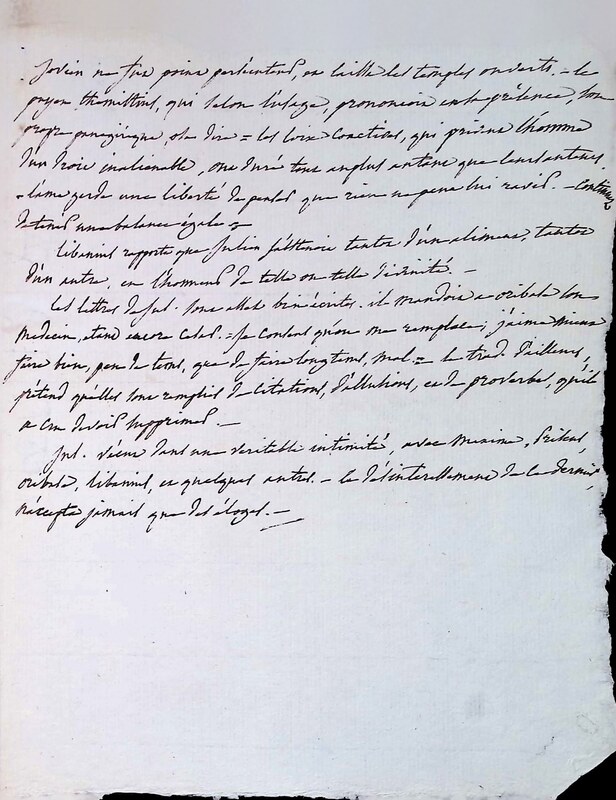 Jovien ne fut point persécuteur, et laissa les temples ouverts. = le
payen themistius, qui selon l'usage, prononçoit en sa présence, son
propre panégirique, osa dire = les loix coactives, qui privent l'homme
d'un droit inaliénable, ont duré tout au plus autant que leurs auteurs
- l'ame garde une liberté de penser que rien ne peut lui ravir. - continuez
de tenir une balance égale =
libanius rapporte que Julien s'abstenoit tantot d'un aliment, tantot
d'un autre, en l'honneur de telle ou telle divinité. -
les lettres de Jul. sont assez bien écrites. il mandoit a oribase son
medecin, étant encore Cesar. = je consens qu'on me remplace; j'aime mieux
faire bien, peu de tems, que de faire longtems, mal = le trad. d'ailleurs,
prétend qu'elles sont remplies de citations, d'allusions, et de proverbes, qu'il
a cru devoir supprimer. -
Jul. vécut dans une veritable intimité, avec maxime, Priscus,
oribase, libanius, et quelques autres. - le désinteressement de ce dernier,
n'accepta jamais que des éloges. -